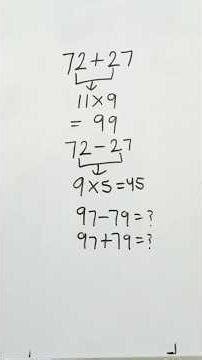 72+27
11×9
= 99
72-27
9×5=45
97-79=?
97+79=?